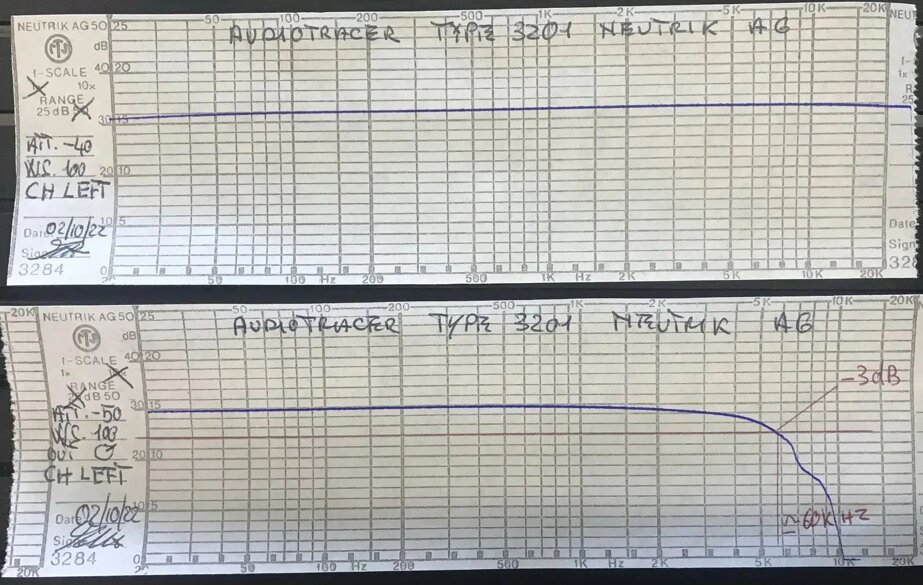 50 100 200 500 1K 2K 5K 10K 20K
NEUTRIK AG 50 25
AUDIOTRACER TYPE 3201 NEUTRIK AG
dB
40 20
f-SCALE
1x 10x
RANGE
25 dB 50
30 15
ATT. -40
W.S. 100
20 10
CH LEFT
10 5
Date 02/10/22
Sign
3284
0
20 50 100 Hz 200 500 1K Hz 2K 5K 10K 20K
NEUT
f-
1x
R
25
Date
Sign
328
20K 50 100 200 500 1K 2K 5K 10K 20K
NEUTRIK AG 50 25
AUDIOTRACER TYPE 3201 NEUTRIK AG
dB
40 20
f-SCALE
1x
RANGE
dB 50
-3dB
30 15
ATT. -50
W.S. 100
OUT
20 10
CH LEFT
10 5
Date 02/10/22
~60K HZ
Sign
3284
0
20K 20 50 100 Hz 200 500 1K Hz 2K 5K 10K 20K